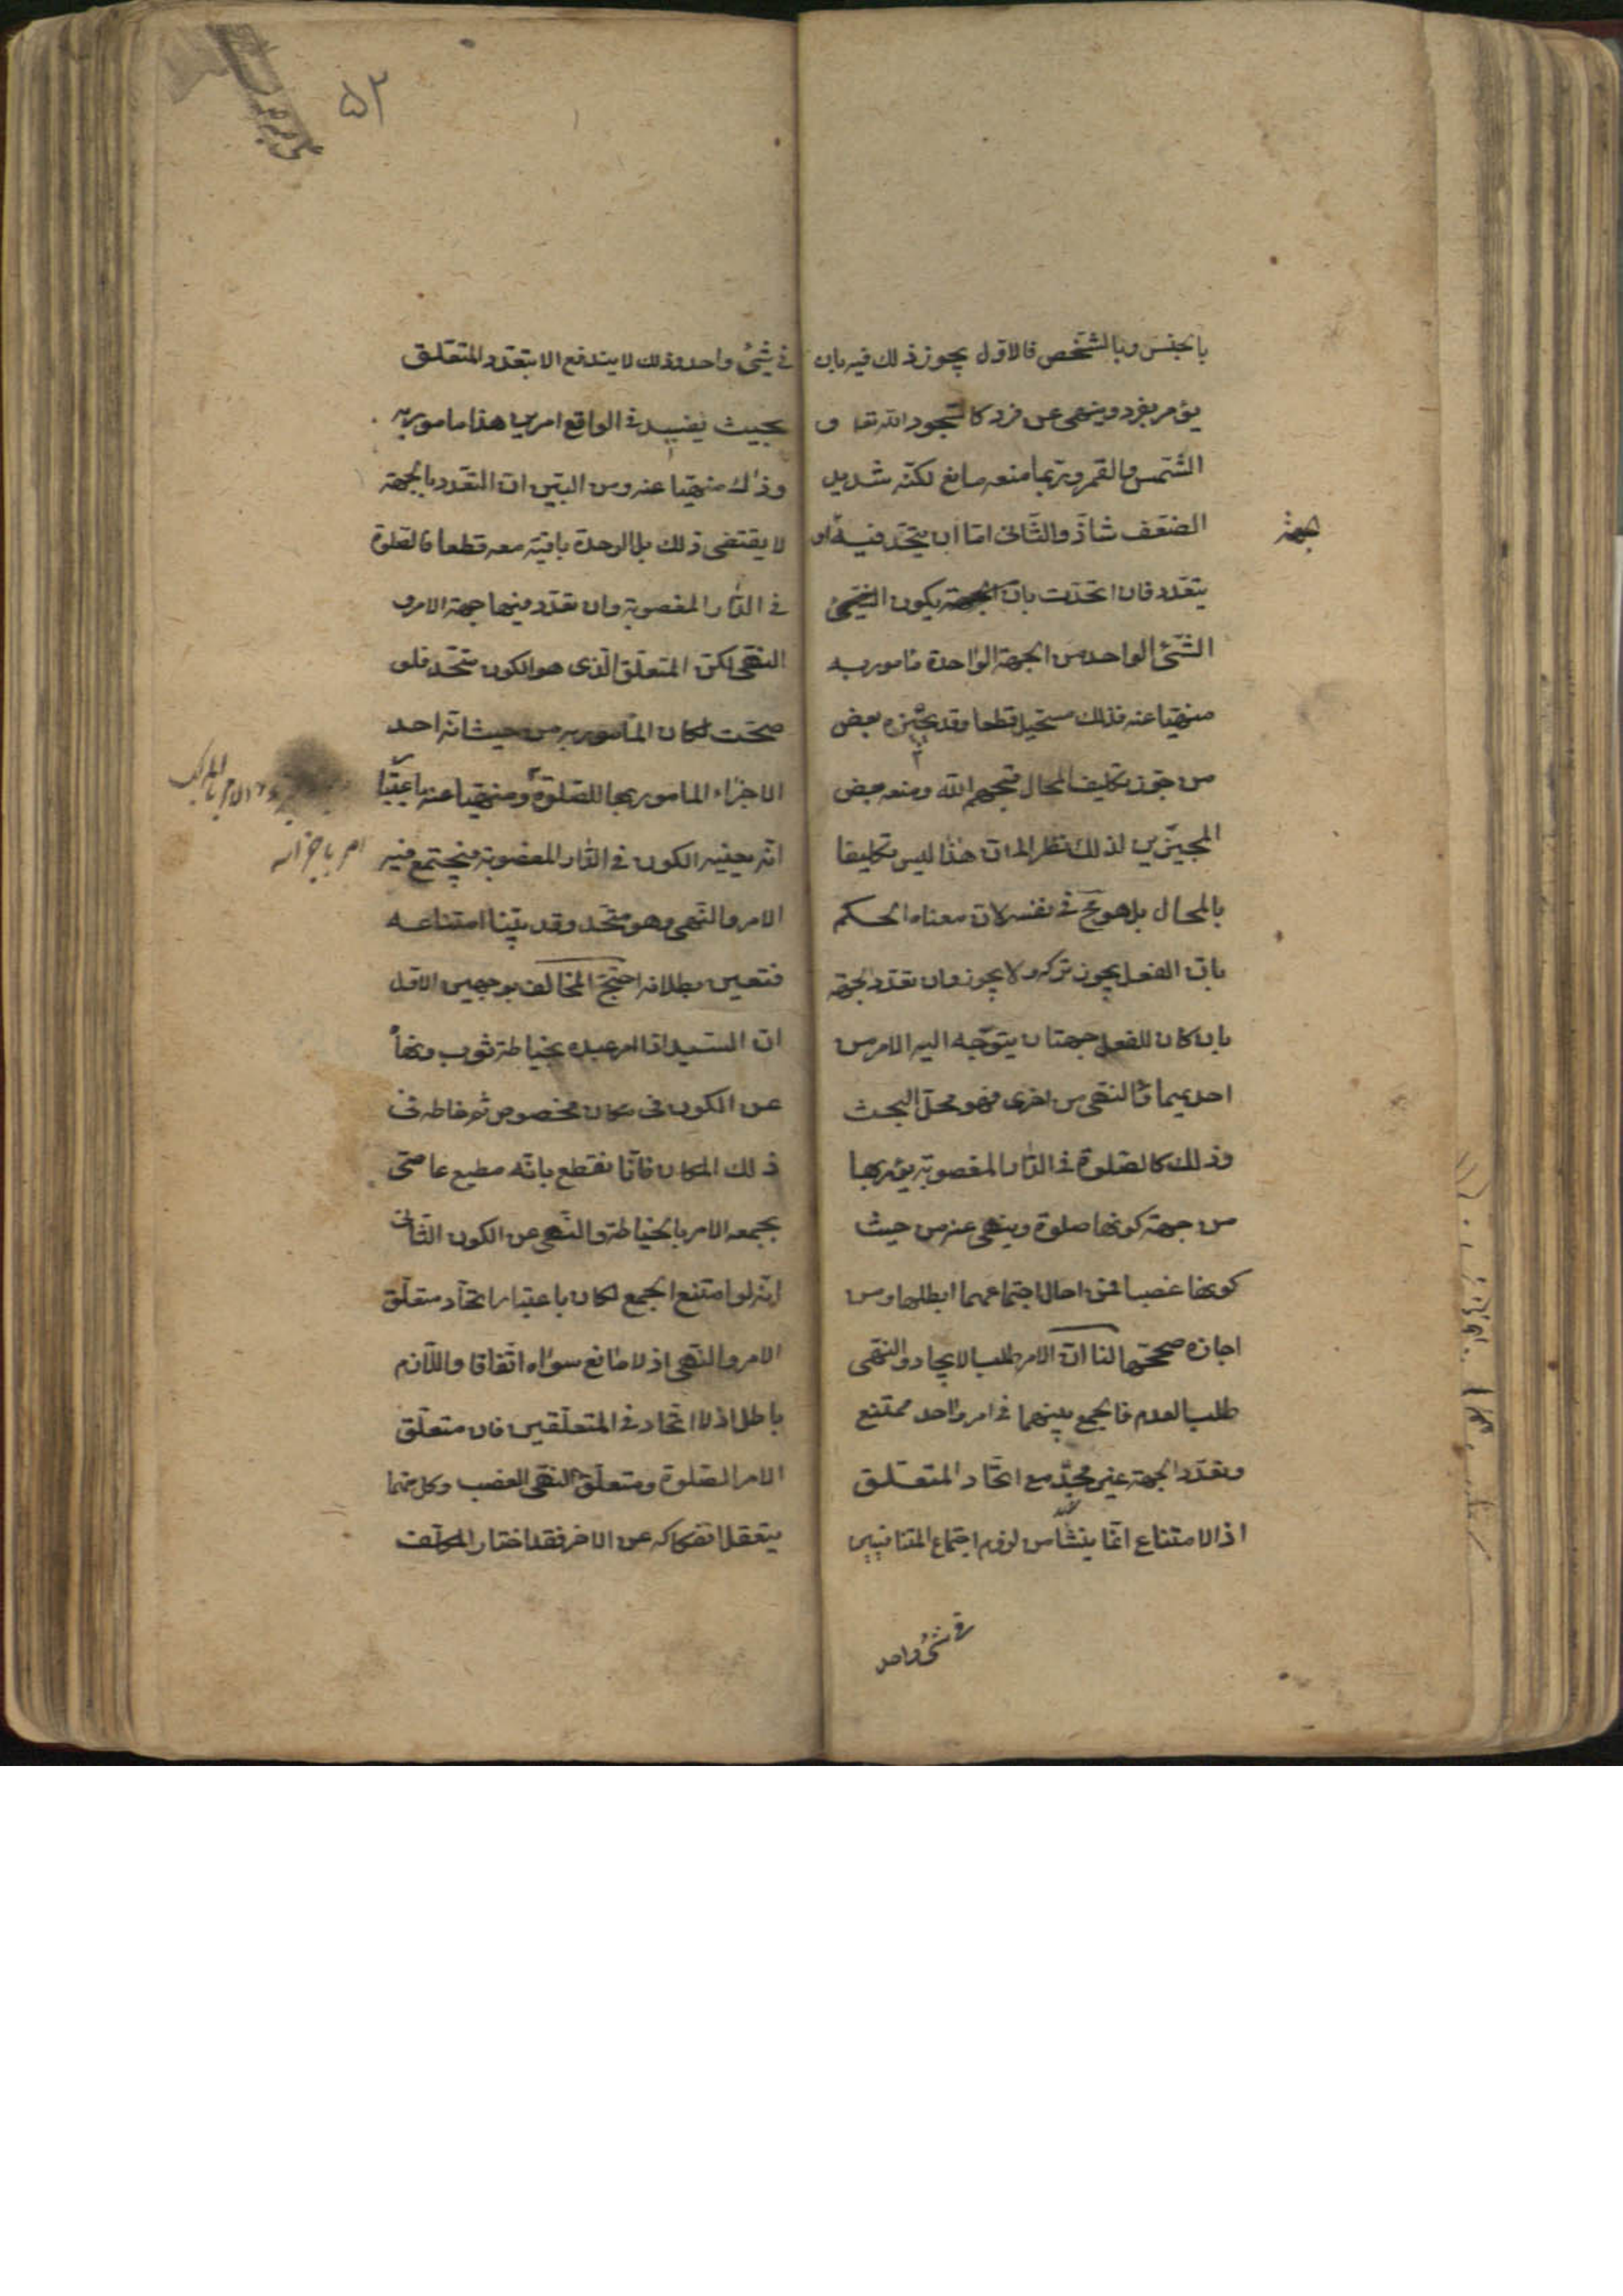 بالجنس وبالشخص فالاول يجوز ذلك فيه بان
يؤمر بفرد وينهى عن فرد كالسجود الله تعا و
الشمس والقمر وربما منعه مانع لكنه شديد
الضعف شاذ والثانى اما ان يتحد فيه او
الجهة
يتعدد فان اتحدت بان يكون الشئ
الشئ الواحد من الجهة الواحدة مامور به
منهيا عنه فذلك مستحيل قطعا وقد يجيزه بعض
من جوز تكليف المحال قبحهم الله ومنعه بعض
المجيزين لذلك نظرا الى ان هذا ليس تكليفا
بالمحال بل هو مح فى نفسه لان معناه الحكم
بان الفعل يجوز تركه ولا يجوز وان تعدد الجهة
بان كان للفعل جهتان يتوجه اليه الامر من
احديهما والنهى من اخرى فهو محل البحث
وذلك كالصلوة فى الدار المغصوبة يؤمر بها
من جهة كونها صلوة وينهى عنه من حيث
كونها غصبا فمن احال اجتماعهما ابطلها ومن
اجازه صححها لنا ان الامر طلب الايجاد والنهى
طلب العدم فالجمع بينهما فى امر واحد ممتنع
وتعدد الجهة غير مجد مع اتحاد المتعلق
اذ الامتناع انما ينشأ من لزوم اجتماع المتنافيين
فى شئ واحد
۵۲
فى شئ واحد وذلك لا يندفع الا بتعدد المتعلق
بحيث يفيد فى الواقع امرين هذا مامور به
وذلك منهيا عنه ومن البين ان التعدد بالجهة
لا يقتضى ذلك بل الوحدة باقية معه قطعا فالصلوة
فى الدار المغصوبة وان تعدد فيها جهة الامر و
النهى لكن المتعلق الذى هو الكون متحد فلو
صحت لكان المأمور به من حيث انه احد
الاجزاء المامور بها للصلوة ومنهيا عنه باعتبار
انه بعينه الكون فى الدار المغصوبة فيجتمع فيه
الامر والنهى وهو متحد وقد بينا امتناعه
فتعين بطلانه احتج المخالف بوجهين الاول
ان السيد اذا امر عبده بخياطة ثوب ونهاه
عن الكون فى مكان مخصوص ثم خاطه فى
ذلك المكان فانا نقطع بانه مطيع عاصى
بجمعه الامر بالخياطة والنهى عن الكون الثانى
انه لو امتنع الجمع لكان باعتبار اتحاد متعلق
الامر والنهى اذ لا مانع سواه اتفاقا واللازم
باطل اذ لا اتحاد فى المتعلقين فان متعلق
الامر الصلوة ومتعلق النهى الغصب وكل منهما
يتعقل انفكاكه عن الاخر فقد اختار المكلف